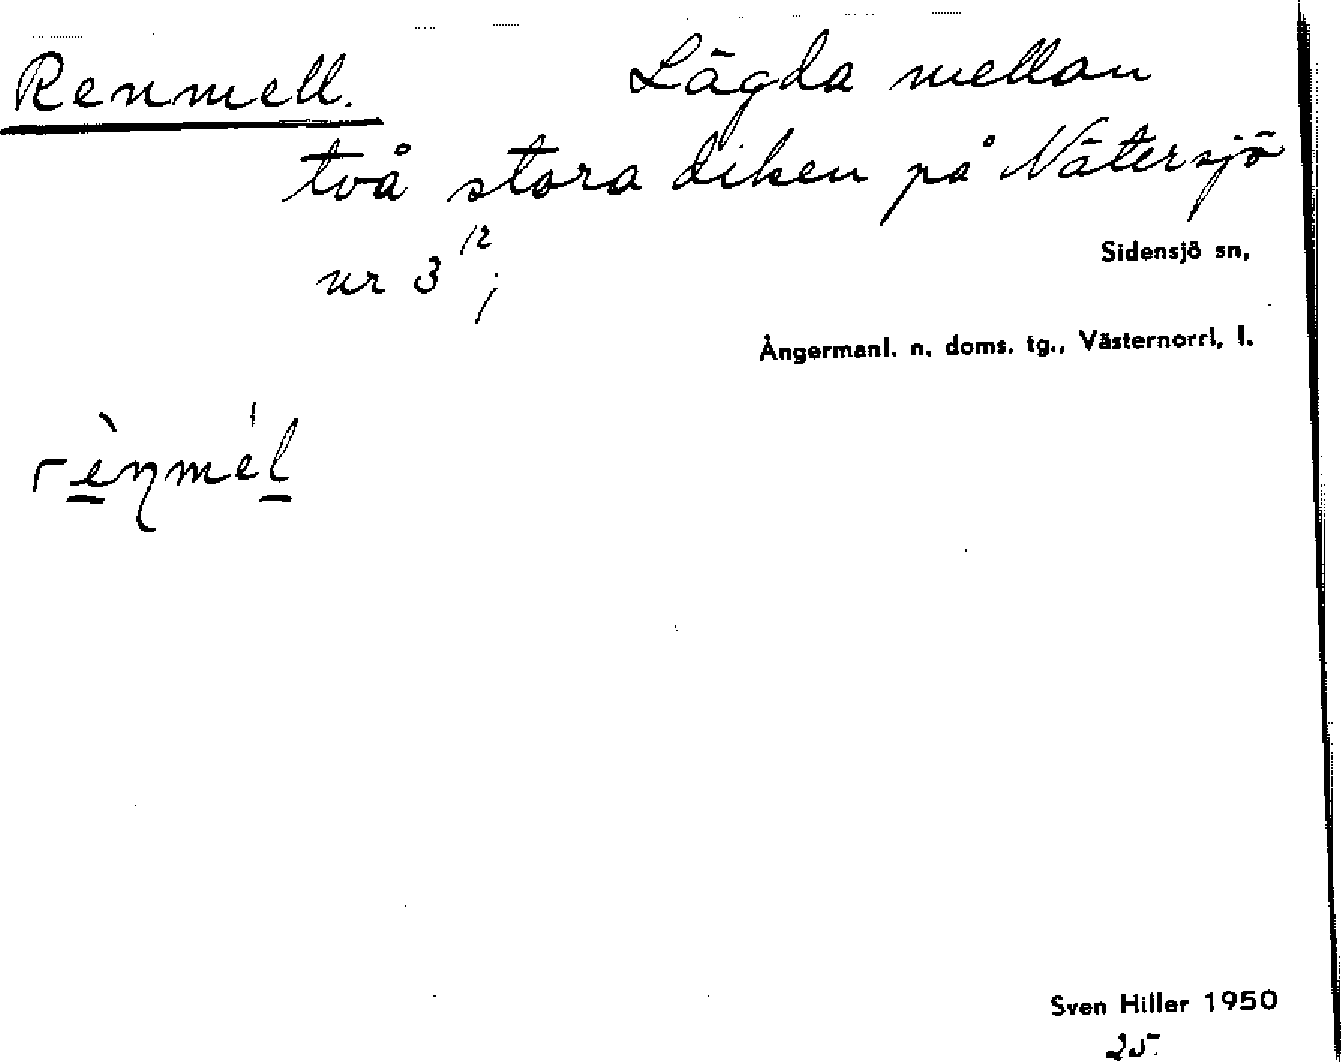 Renmell. Lägda mellan
två stora diken på Nätersjö
nr 3 12;
Sidensjö sn,
Ångermanl. n. doms. tg., Västernorrl. l.
rènmél
Sven Hiller 1950
25